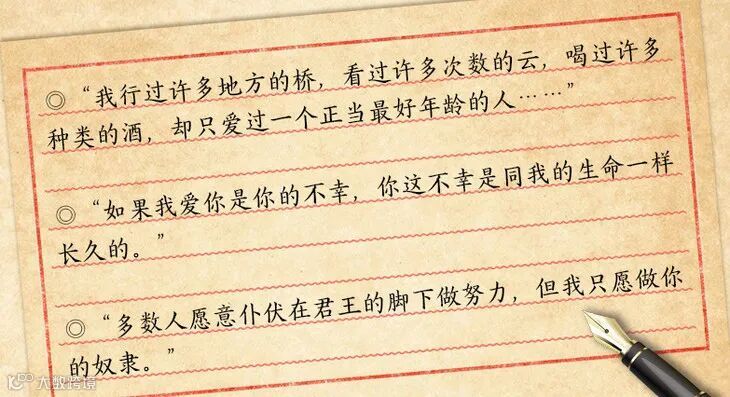 ◎ “我行过许多地方的桥，看过许多次数的云，喝过许多
种类的酒，却只爱过一个正当最好年龄的人……”
◎ “如果我爱你是你的不幸，你这不幸是同我的生命一样
长久的。”
◎ “多数人愿意仆伏在君王的脚下做努力，但我只愿做你
的奴隶。”
大数跨境